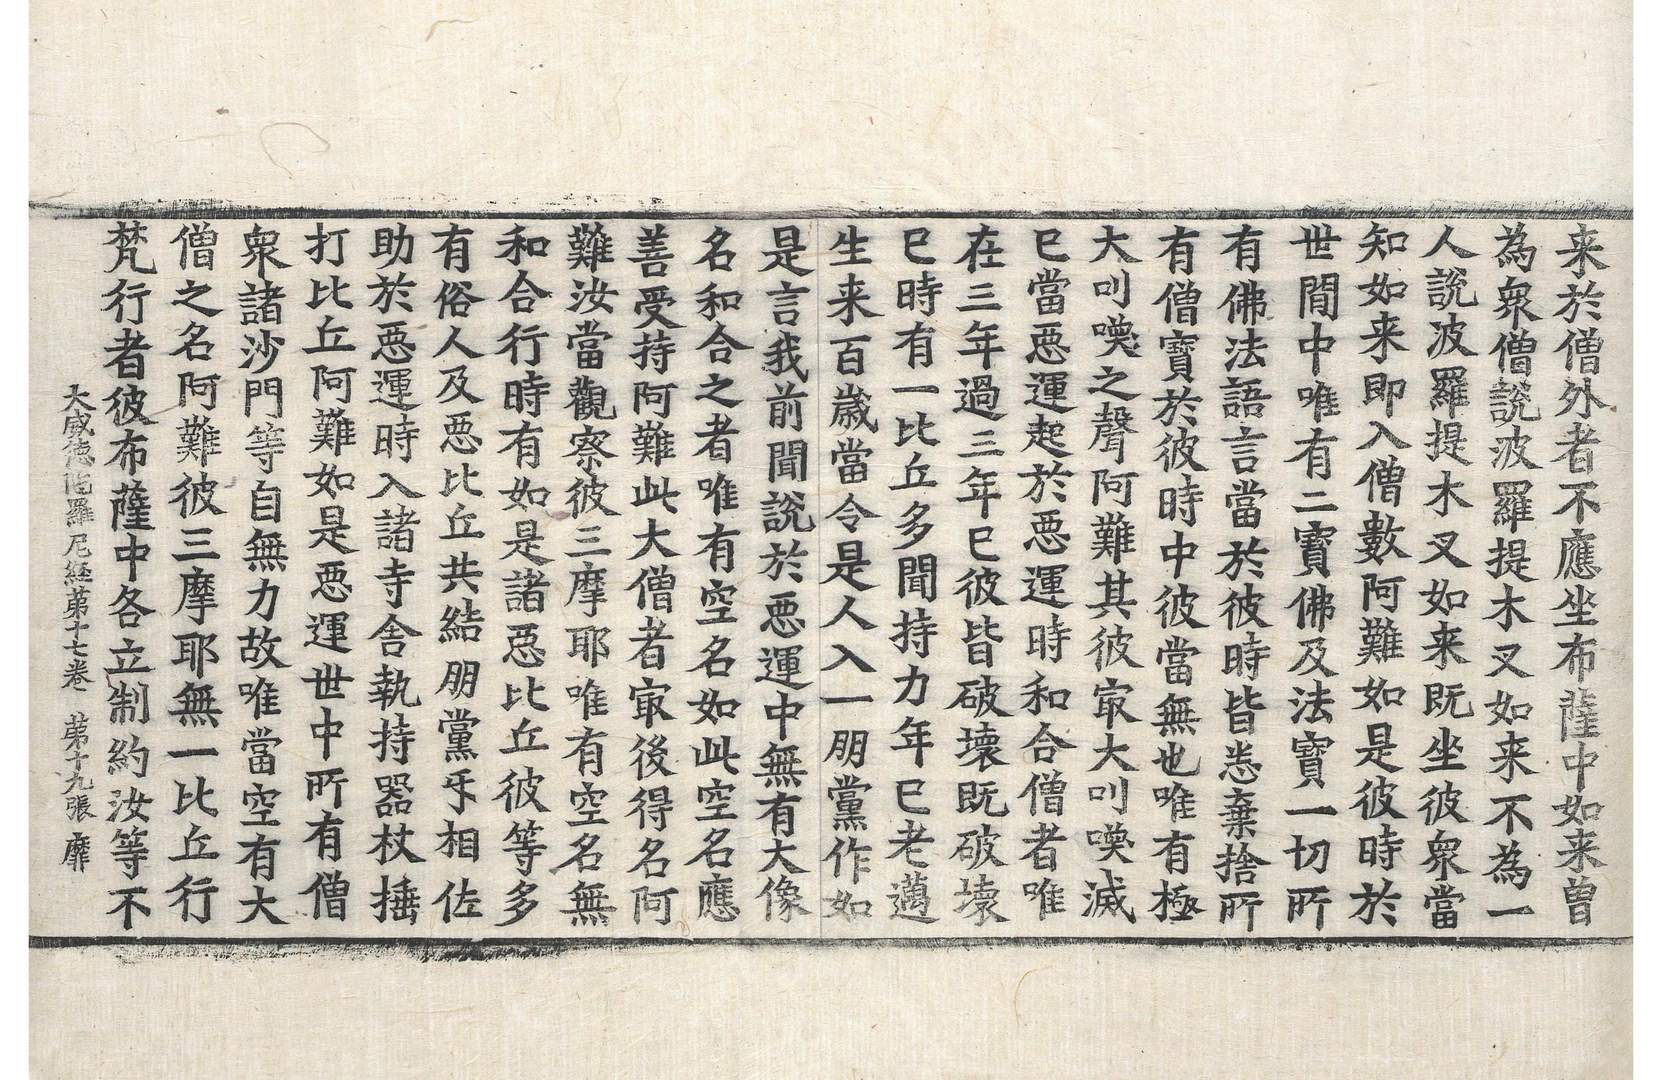 来於僧外者不應坐布薩中如来曾
為衆僧說波羅提木叉如来不為一
人說波羅提木叉如来既坐彼衆當
知如来即入僧數阿難如是彼時於
世閒中唯有二寶佛及法寶一切所
有佛法語言當於彼時皆悉棄捨所
有僧寶於彼時中彼當無也唯有極
大叫喚之聲阿難其彼㝡大叫喚滅
已當惡運起於惡運時和合僧者唯
在三年過三年已彼皆破壞既破壞
已時有一比丘多聞持力年已老邁
生来百歲當令是人入一朋黨作如
是言我前聞說於惡運中無有大像
名和合之者唯有空名如此空名應
善受持阿難此大僧者㝡後得名阿
難汝當觀察彼三摩耶唯有空名無
和合行時有如是諸惡比丘彼等多
有俗人及惡比丘共結朋黨㸦相佐
助於惡運時入諸寺舍執持器杖捶
打比丘阿難如是惡運世中所有僧
衆諸沙門等自無力故唯當空有大
僧之名阿難彼三摩耶無一比丘行
梵行者彼布薩中各立制約汝等不
大威德陁羅尼経苐十七卷　苐十九張　靡